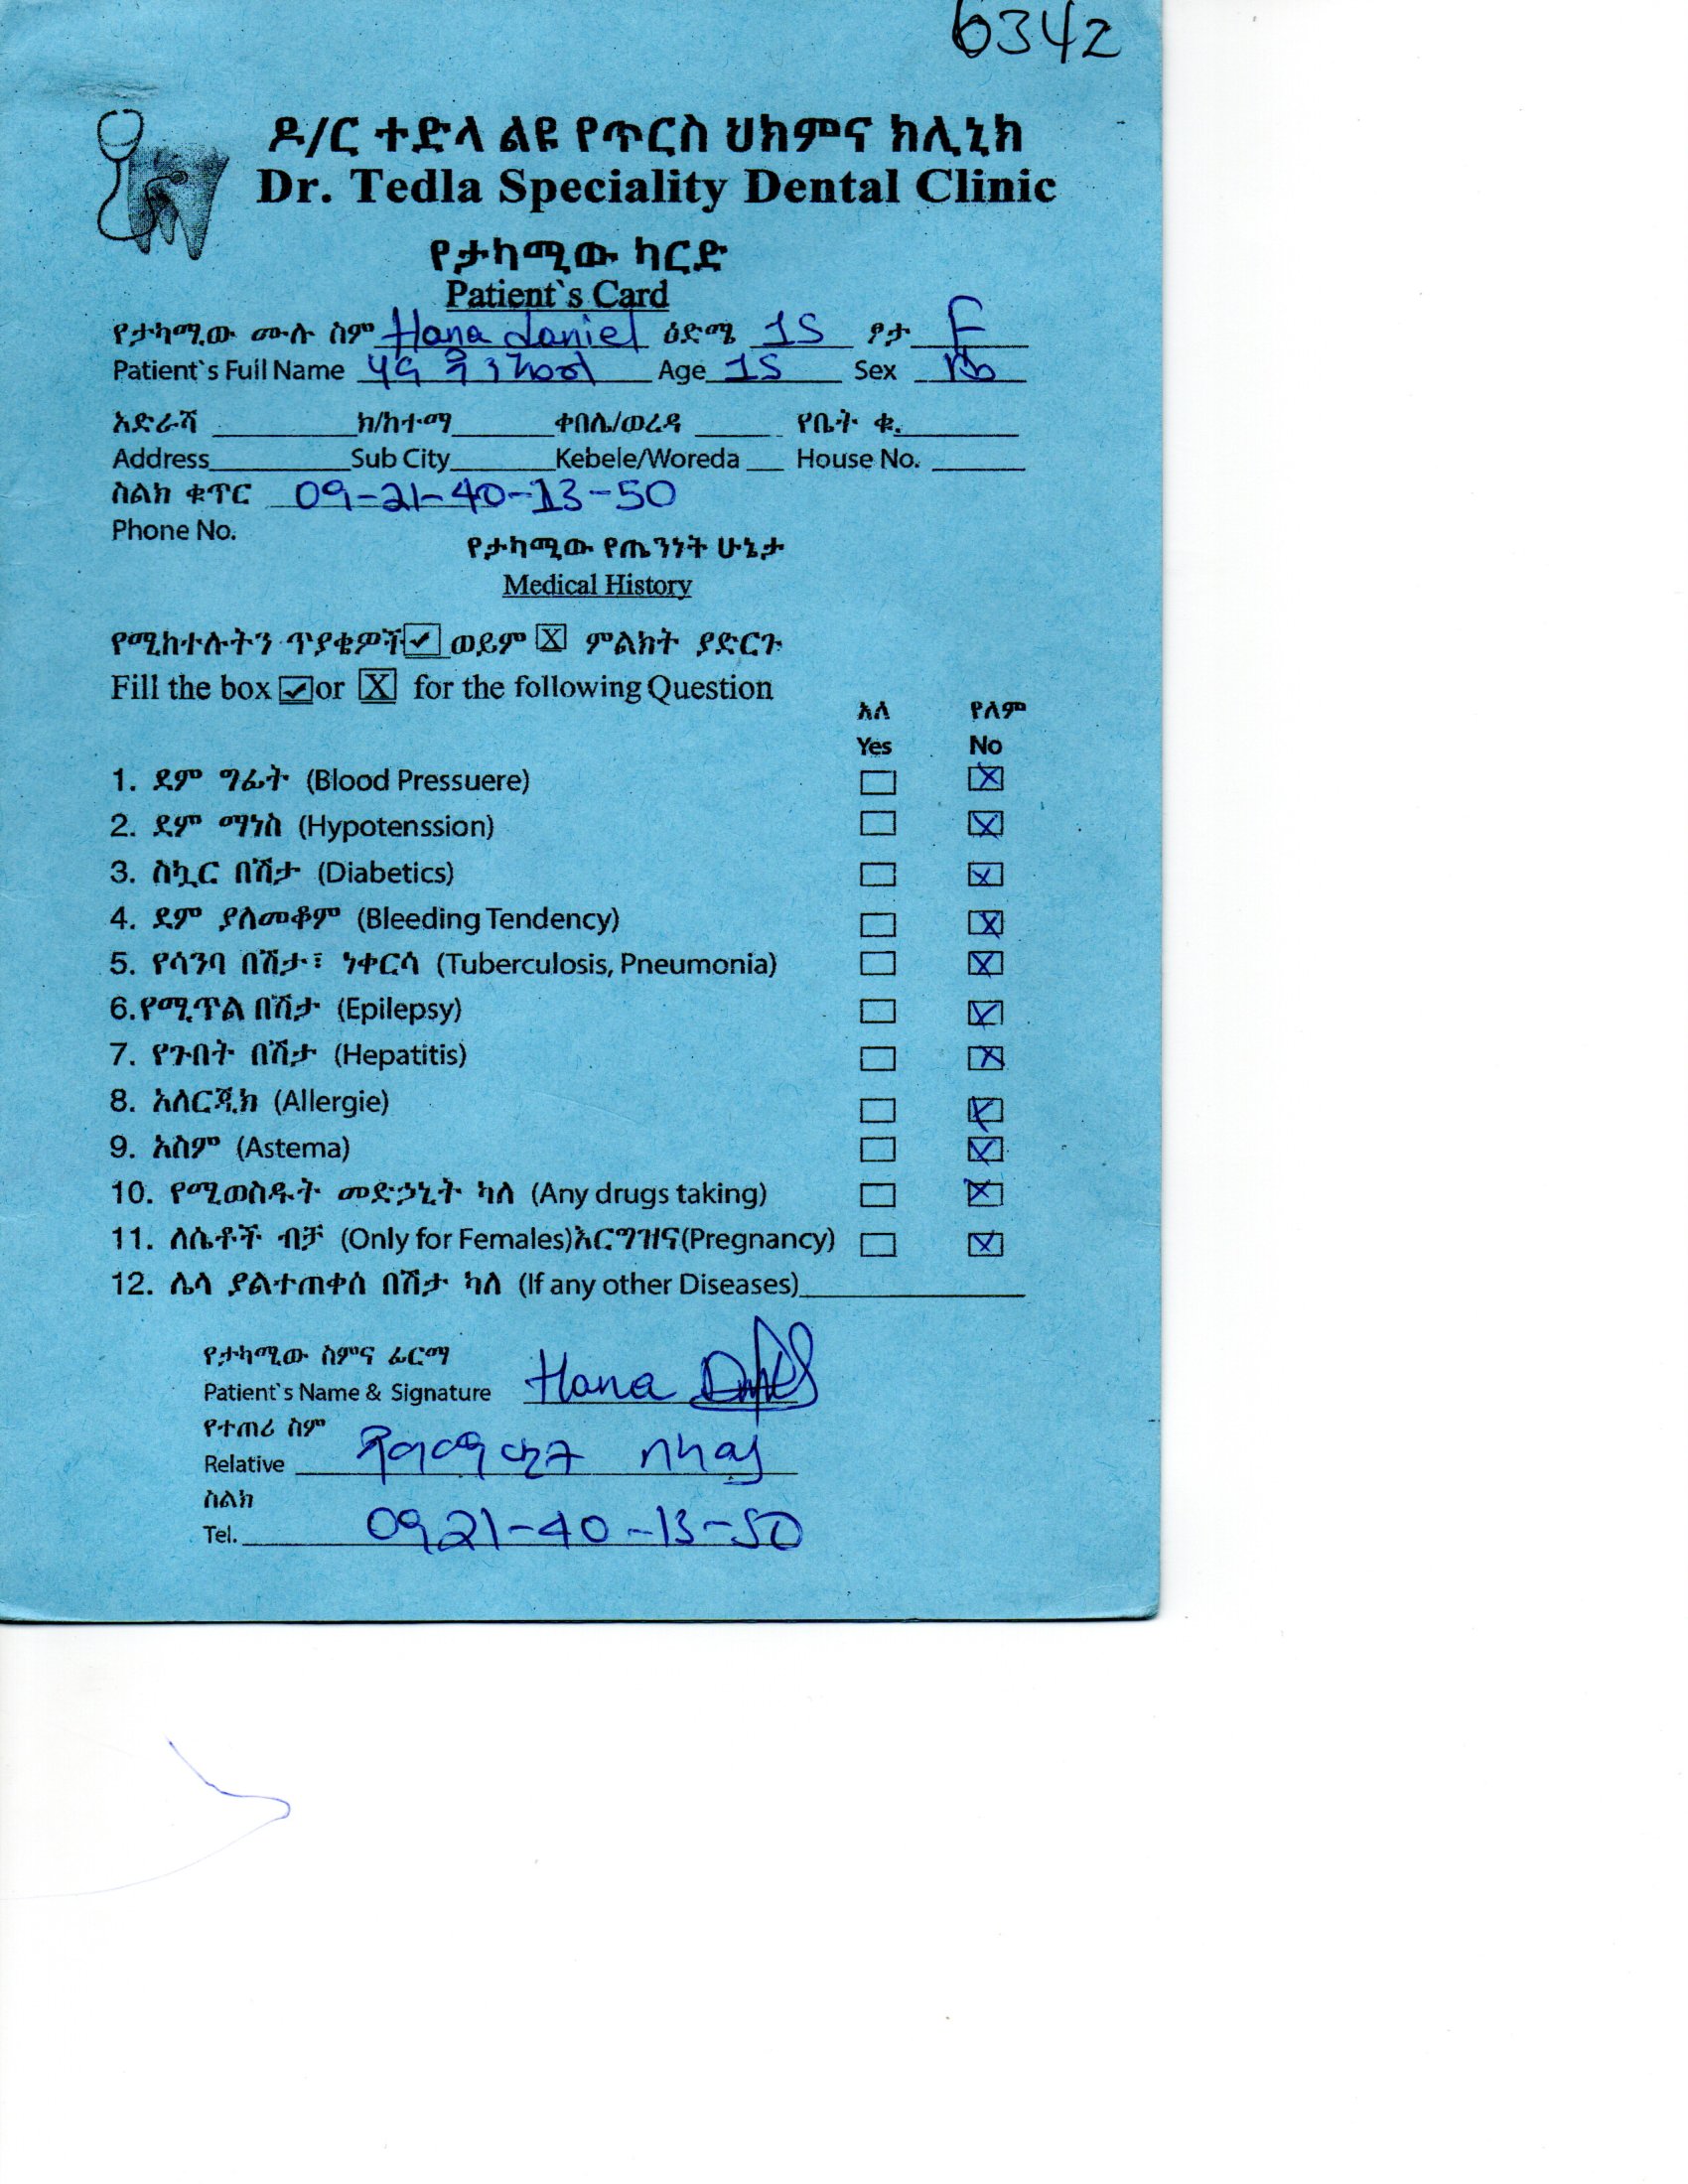 6342
ዶ/ር ተድላ ልዩ የጥርስ ህክምና ክሊኒክ
Dr. Tedla Speciality Dental Clinic
የታካሚው ካርድ
Patient`s Card
የታካሚው ሙሉ ስም Hana daniel ዕድሜ 15 ፆታ F
Patient`s Full Name Age 15 Sex
አድራሻ ክ/ከተማ ቀበሌ/ወረዳ የቤት ቁ.
Address Sub City Kebele/Woreda House No.
ስልክ ቁጥር 09-21-40-13-50
Phone No.
የታካሚው የጤንነት ሁኔታ
Medical History
የሚከተሉትን ጥያቄዎች ✓ ወይም X ምልክት ያድርጉ
Fill the box ✓ or X for the following Question
አለ የለም
Yes No
1. ደም ግፊት (Blood Pressuere)
2. ደም ማነስ (Hypotenssion)
3. ስኳር በሽታ (Diabetics)
4. ደም ያለመቆም (Bleeding Tendency)
5. የሳንባ በሽታ፣ ነቀርሳ (Tuberculosis, Pneumonia)
6. የሚጥል በሽታ (Epilepsy)
7. የጉበት በሽታ (Hepatitis)
8. አለርጂክ (Allergie)
9. አስም (Astema)
10. የሚወስዱት መድኃኒት ካለ (Any drugs taking)
11. ለሴቶች ብቻ (Only for Females)እርግዝና(Pregnancy)
12. ሌላ ያልተጠቀሰ በሽታ ካለ (If any other Diseases)
የታካሚው ስምና ፊርማ
Patient`s Name & Signature Hana
የተጠሪ ስም
Relative
ስልክ
Tel. 0921-40-13-50